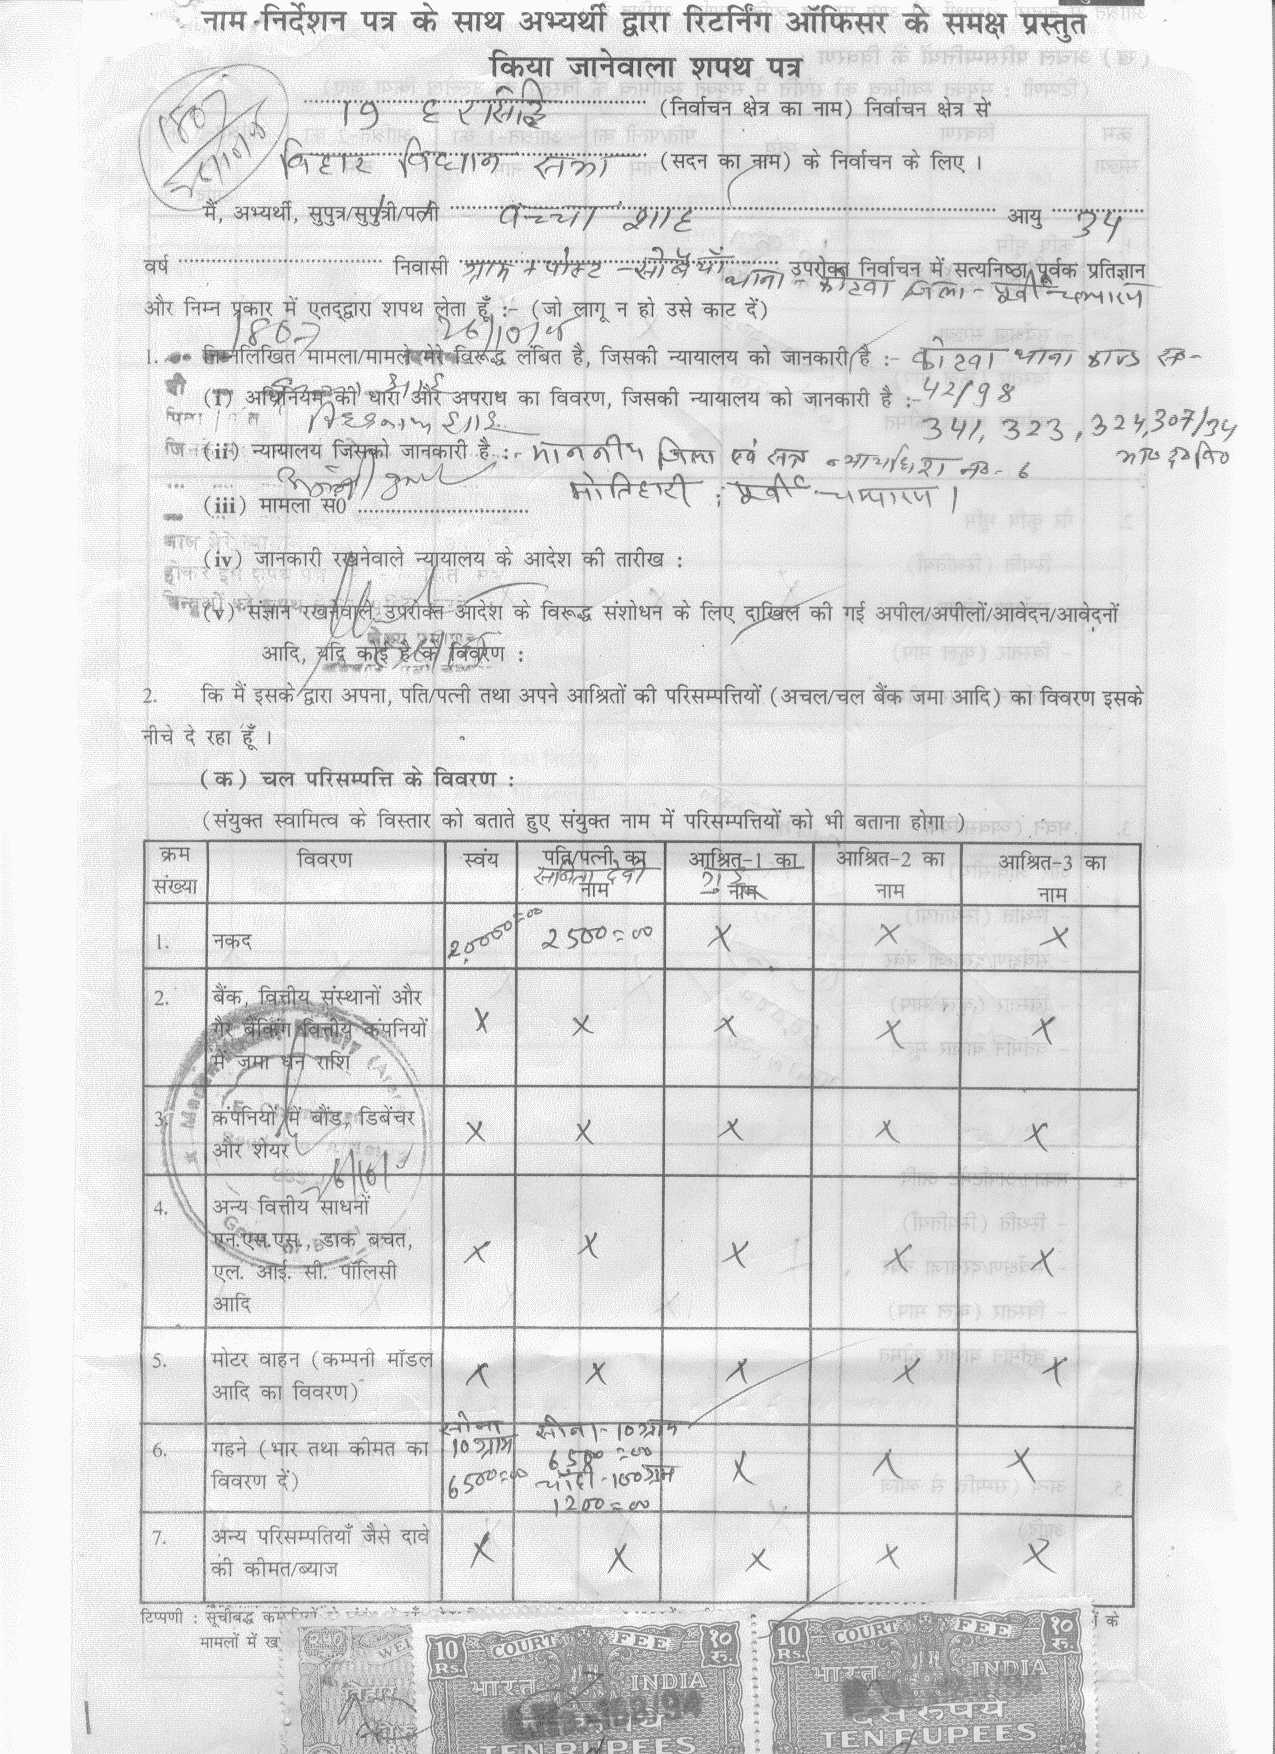 नाम-निर्देशन पत्र के साथ अभ्यर्थी द्वारा रिटर्निंग ऑफिसर के समक्ष प्रस्तुत
किया जानेवाला शपथ पत्र
1807
19 हरसिद्धि (निर्वाचन क्षेत्र का नाम) निर्वाचन क्षेत्र से
विहार विधान सभा (सदन का नाम) के निर्वाचन के लिए ।
मैं, अभ्यर्थी, सुपुत्र/सुपुत्री/पत्नी बच्चा शाह आयु 34
वर्ष निवासी ग्राम + पोस्ट - उपरोक्त निर्वाचन में सत्यनिष्ठा पूर्वक प्रतिज्ञान
थाना - कोटवा जिला - पूर्वी चम्पारण
और निम्न प्रकार में एतद्द्वारा शपथ लेता हूँ :- (जो लागू न हो उसे काट दें)
1807 26/10/05
1. निम्नलिखित मामला/मामले मेरे विरूद्ध लंबित है, जिसकी न्यायालय को जानकारी है :- कोटवा थाना काण्ड सं-
(i) अधिनियम की धारा और अपराध का विवरण, जिसकी न्यायालय को जानकारी है :- 42/98
341, 323, 324, 307/34
भा० द० वि०
(ii) न्यायालय जिसको जानकारी है :- माननीय जिला एवं सत्र न्यायाधिश नं०- 6
मोतिहारी ; पूर्वी चम्पारण ।
(iii) मामला सं0
(iv) जानकारी रखनेवाले न्यायालय के आदेश की तारीख :
(v) संज्ञान रखनेवाले उपरोक्त आदेश के विरूद्ध संशोधन के लिए दाखिल की गई अपील/अपीलों/आवेदन/आवेदनों
आदि, यदि कोई है के विवरण :
2. कि मैं इसके द्वारा अपना, पति/पत्नी तथा अपने आश्रितों की परिसम्पत्तियों (अचल/चल बैंक जमा आदि) का विवरण इसके
नीचे दे रहा हूँ ।
(क) चल परिसम्पत्ति के विवरण :
(संयुक्त स्वामित्व के विस्तार को बताते हुए संयुक्त नाम में परिसम्पत्तियों को भी बताना होगा )
क्रम संख्या विवरण स्वंय पति/पत्नी का नाम आश्रित-1 का नाम आश्रित-2 का नाम आश्रित-3 का नाम
1. नकद 20000=00 2500=00 X X X
2. बैंक, वित्तीय संस्थानों और
गैर बैंकिंग वित्तीय कंपनियों X X X X X
में जमा धन राशि
3. कंपनियों में बौंड, डिबेंचर
और शेयर X X X X X
4. अन्य वित्तीय साधनों
एन.एस.एस., डाक बचत, X X X X X
एल. आई. सी. पॉलिसी
आदि
5. मोटर वाहन (कम्पनी मॉडल
आदि का विवरण) X X X X X
6. गहने (भार तथा कीमत का
विवरण दें)
सोना
10 ग्राम
6500=00
सोना - 10 ग्राम
6500=00
चाँदी - 100 ग्राम
1200=00
X X X
7. अन्य परिसम्पतियाँ जैसे दावे
की कीमत/ब्याज X X X X X
टिप्पणी : सूचीबद्ध
मामलों में
के
10 Rs. COURT FEE १० रु.
भारत INDIA
TEN RUPEES
10 Rs. COURT FEE १० रु.
भारत INDIA
दस रुपये
TEN RUPEES